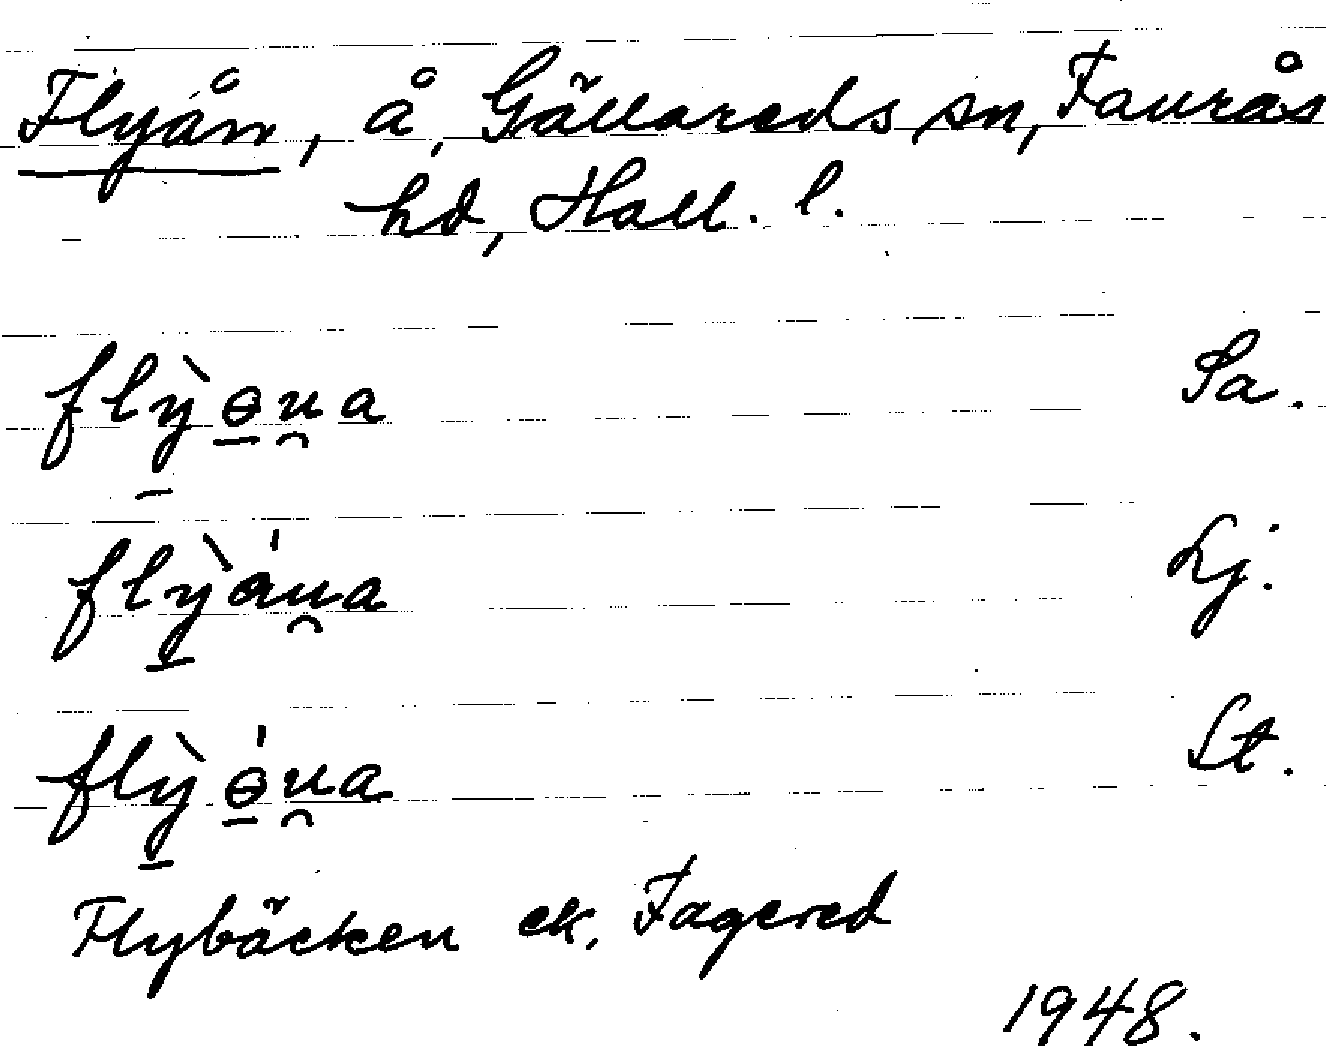 Flyån, å, Gällareds sn, Faurås
hd, Hall. l.
flỳɵ̱u̯a Sa.
flỳa̍u̯a Lj.
flỳɵ̱̍u̯a St.
Flybäcken ek. Fagered
1948.